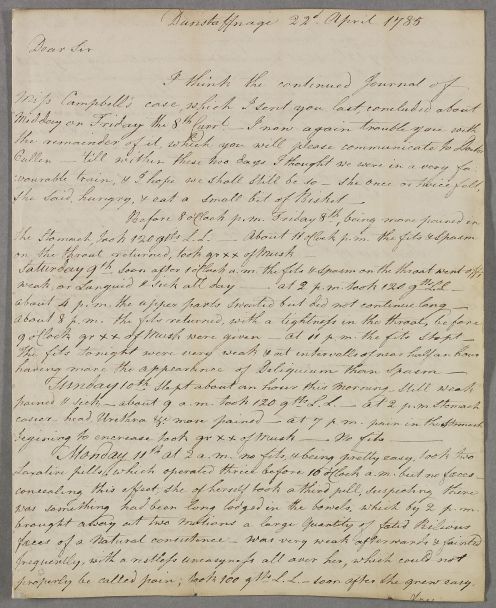 Dunstaffnage 22d April 1785
Dear Sir
I think the continued Journal of
Miss Campbell's case, which I sent you last, concluded about
Midday on Friday the 8th Curt. I now again trouble you with
the remainder of it, which you will please communicate to Doctor
Cullen — till within these two days I thought we were in a very fa-
vourable train, & I hope we shall still be so — she once or twice felt,
she said, hungry, & eat a small bit of Bisket —
Before 8 oClock p.m. Friday 8th being more pained in
the Stomach, took 120 gtts L.L. — About 11 oClock p.m. the fits & Spasm
on the throat returned, took gr xx of Musk —
Satturday 9th Soon after 1 oClock a.m. the fits & spasm on the throat went off;
weak, or Languid & Sick all day — at 2 p.m. took 120 gtts L.L. —
about 4 p.m. the upper parts sweated but did not continue long —
about 8 p.m. the fits returned, with a tightness in the throat, before
9 oClock gr xx of Musk were given — at 11 p.m. the fits stopt —
The fits tonight were very weak & at intervalls of near half an hour
having more the appearance of Deliquium than Spasm —
Sunday 10th Slept about an hour this morning, still weak
pained & Sick — about 9 a.m. took 120 gtts L.L. — at 2 p.m. Stomach
easier head Urethra &c more pained — at 7 p.m. pain in the Stomach
begining to encrease took gr xx of Musk — No fits —
Monday 11th at 2 a.m. no fits, & being pretty easy, took two
Laxative pills, which operated thrice before 10 oClock a.m. but no faeces —
concealing this effect, she of herself took a third pill, suspecting there
was something had been long lodged in the bowels, which by 2 p.m.
brought away at two motions a large Quantity of Solid
faeces of a Natural consistence — was very weak afterwards & fainted
frequently, with a restless uneasyness all over her, which could not
properly be called pain; took 100 gtts L.L. — soon after she grew easy.